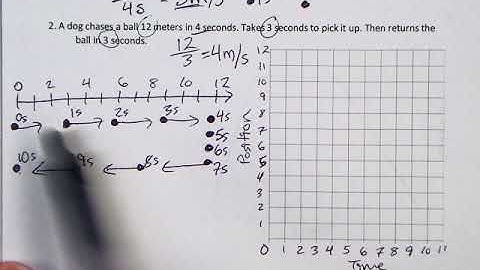 4s
2. A dog chases a ball 12 meters in 4 seconds. Takes 3 seconds to pick it up. Then returns the
ball in 3 seconds.
12/3 = 4m/s
0 2 4 6 8 10 12
0s 1s 2s 3s 4s
5s
6s
10s 9s 8s 7s
Position
12
11
10
9
8
7
6
5
4
3
2
1
0 1 2 3 4 5 6 7 8 9 10 11
Time